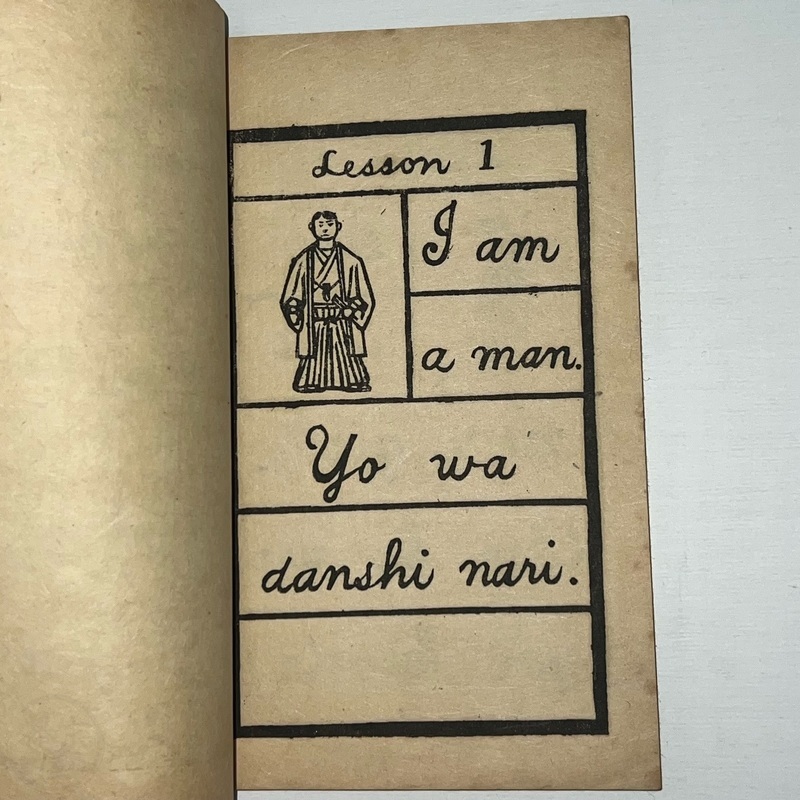 Lesson 1
I am
a man.
Yo wa
danshi nari.